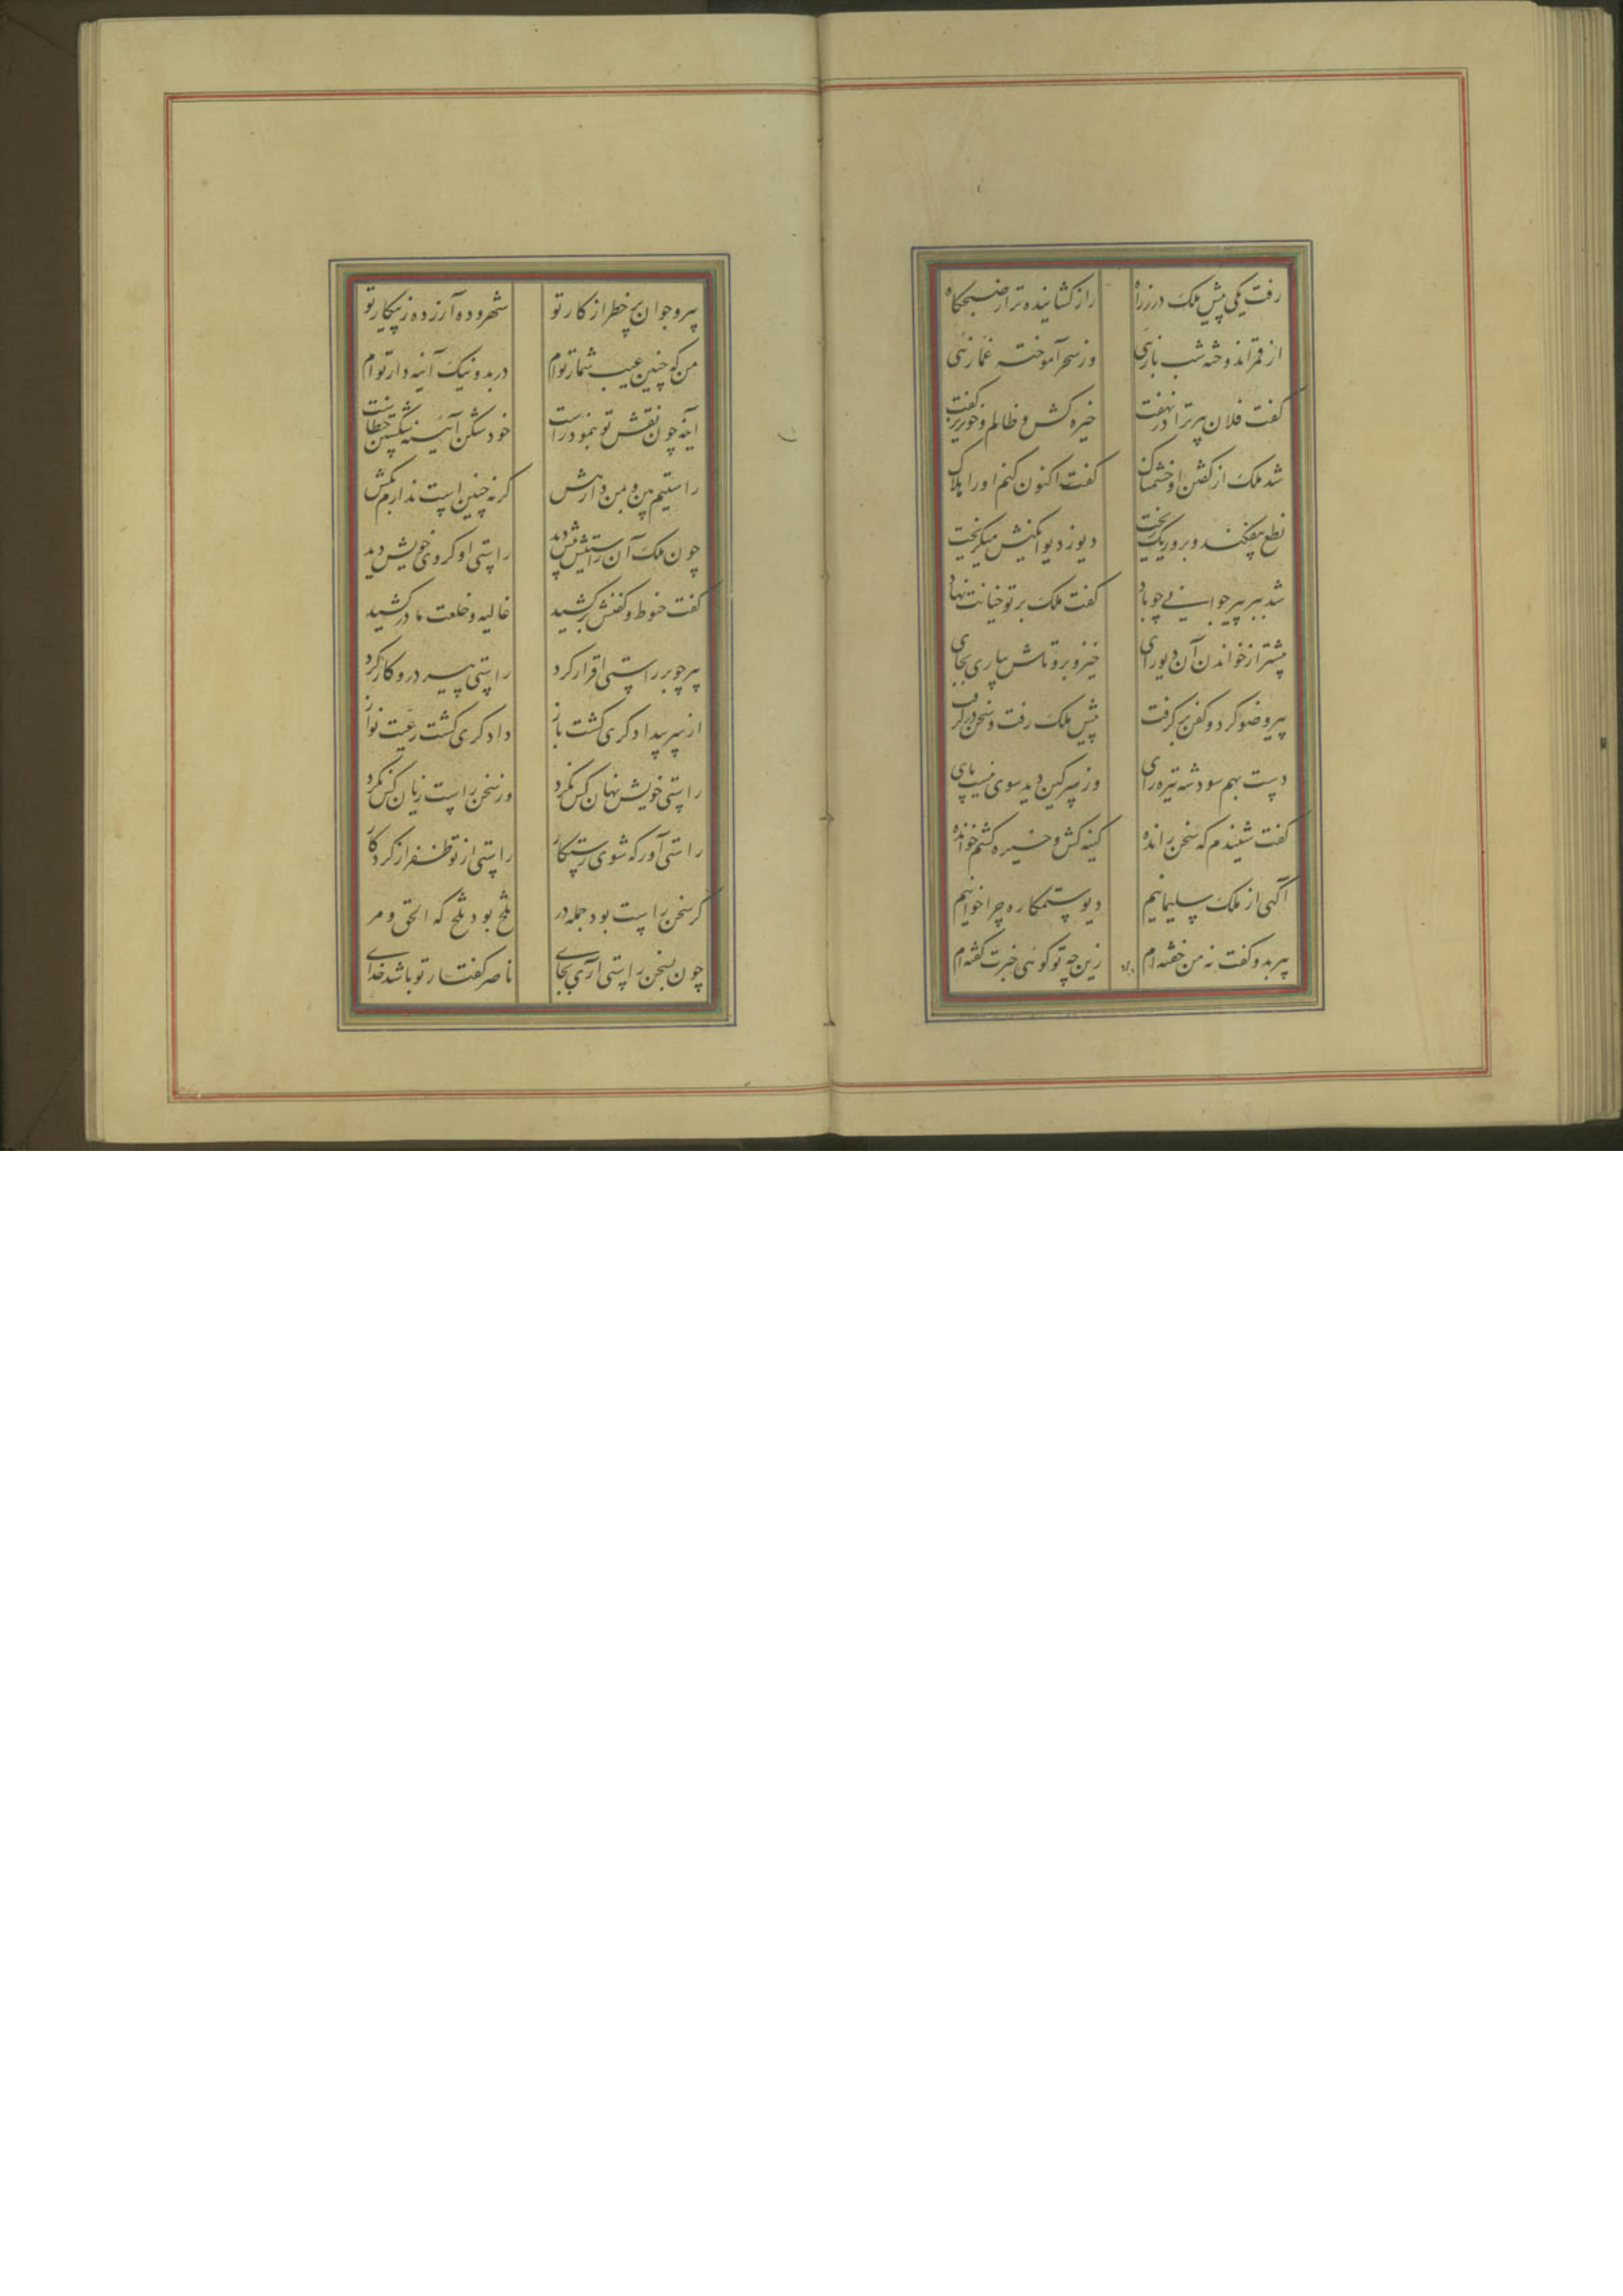 رفت یکی پیش ملک در زراه
راز کشاینده تر از صبحگاه
از قمر اندوخته شب بازئی
وز سحر آموخته غمازئی
کفت فلان پیر ترا در نهفت
خیره کش و ظالم و خونریز کفت
شد ملک از کفتن او خشمناک
کفت اکنون کنم او را هلاک
نطع بیفکند و برو ریک ریخت
دیو ز دیوانکیش میکریخت
شد ببر پیر جوانی چو باد
کفت ملک بر تو خیانت نهاد
پیشتر از خواندن آن دیو رای
خیز و برو تاش بیاری بجای
پیر وضو کرد و کفن بر کرفت
پیش ملک رفت و سخن در کرفت
دست بهم سود شه تیره رای
وز سر کین دید سوی پشت پای
کفت شنیدم که سخن رانده
کینه کش و خیره کشم خوانده
آکهی از ملک سلیمانیم
دیو ستمکاره چرا خوانیم
پیر بدو کفت نه من خفته ام
زین چه تو کوئی خبرت کفته ام
پیر و جوان بر خطر از کار تو
شهر و ده آزرده ز پیکار تو
من که چنین عیب شمار توام
در بد و نیک آینه دار توام
آینه چون نقش تو بنمود راست
خود شکن آئینه شکستن خطاست
راستیم بین و بمن دار هش
کر نه چنین است بدارم بکش
چون ملک آن راستیش پیش دید
راستی او کروی خویش دید
کفت حنوط و کفنش برکشید
غالیه و خلعت ما درکشید
پیر چو بر راستی اقرار کرد
راستی پیر درو کار کرد
از سر بیدادکری کشت باز
دادکری کشت رعیت نواز
راستی خویش نهان کس نکرد
وز سخن راست زیان کس نکرد
راستی آور که شوی رستکار
راستی از تو ظفر از کردکار
کر سخن راست بود جمله در
تلخ بود تلخ که الحق و مر
چون بسخن راستی آری بجای
ناصر کفتار تو باشد خدای